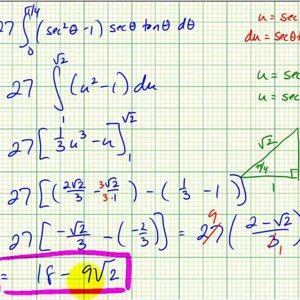 27 ∫₀^{π/4} (sec²θ − 1) secθ tanθ dθ
u = sec
du = secθ
27 ∫₁^{√2} (u² − 1) du
u = sec
u = sec
27 [⅓u³ − u]₁^{√2}
√2
π/4
1
27 [(2√2/3 − 3√2/3·1) − (1/3 − 1)]
27 [−√2/3 − (−2/3)] = 27 9 (2 − √2 / 3 1)
= 18 − 9√2